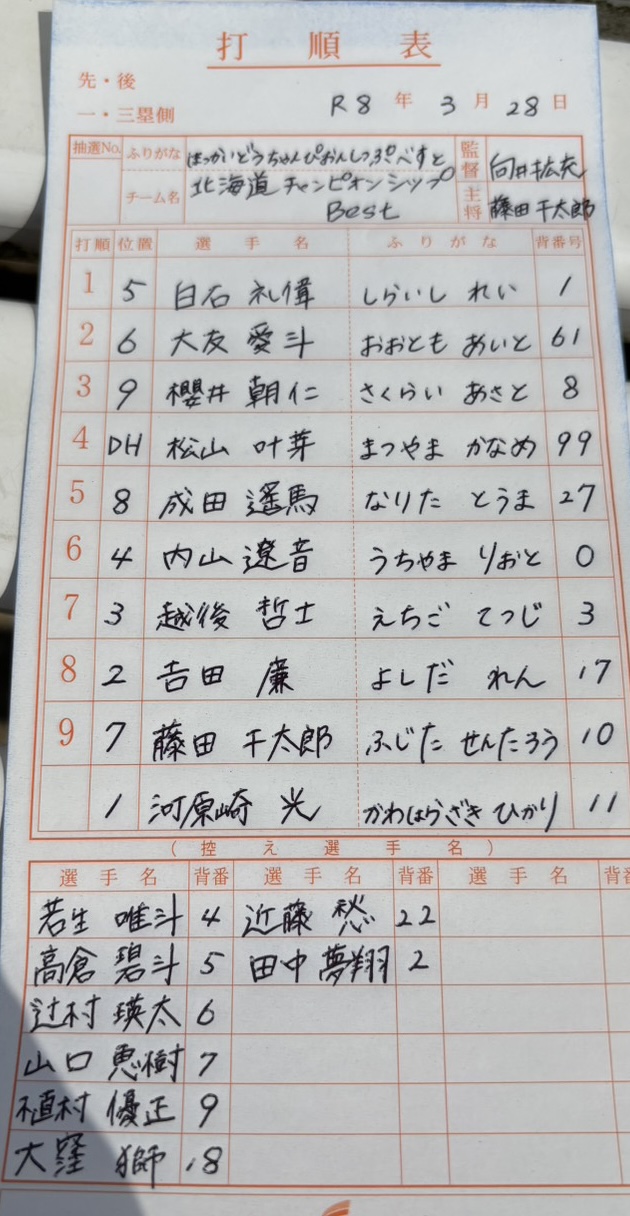 打順表
先・後
一・三塁側
R8年 3月 28日
抽選No. ふりがな ほっかいどうちゃんぴおんしっぷべすと 監督 向井
チーム名 北海道チャンピオンシップ Best 主将 藤田 千太郎
打順 位置 選手名 ふりがな 背番号
1 5 白石 礼偉 しらいし れい 1
2 6 大友 愛斗 おおとも あいと 61
3 9 櫻井 朝仁 さくらい あさと 8
4 DH 松山 叶芽 まつやま かなめ 99
5 8 成田 遥馬 なりた とうま 27
6 4 内山 遼音 うちやま りおと 0
7 3 越後 哲士 えちご てつじ 3
8 2 吉田 廉 よしだ れん 17
9 7 藤田 千太郎 ふじた せんたろう 10
1 河原崎 光 かわはらざき ひかり 11
(控え選手名)
選手名 背番 選手名 背番 選手名 背番
若生 唯斗 4 近藤 愁 22
高倉 碧斗 5 田中 夢翔 2
辻村 瑛太 6
山口 恵樹 7
植村 優正 9
大窪 獅 18